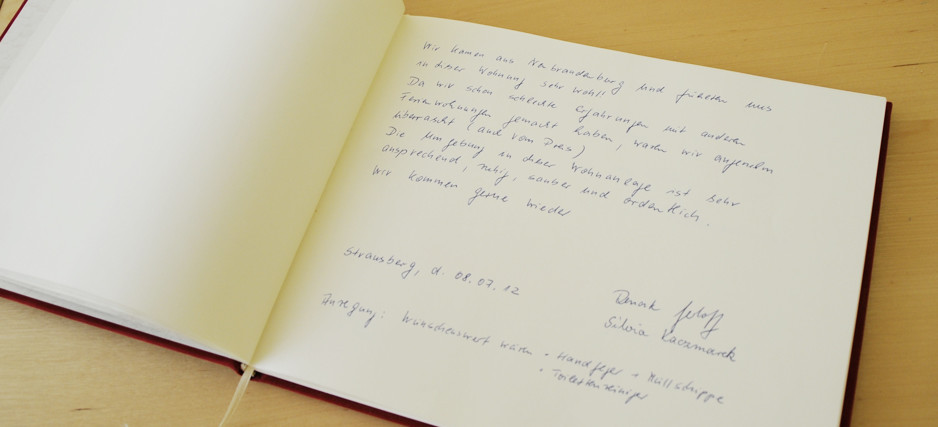 Wir kamen aus Neubrandenburg und fühlten uns
in dieser Wohnung sehr wohl!
Da wir schon schlechte Erfahrungen mit anderen
Ferienwohnungen gemacht haben, waren wir angenehm
überrascht (auch vom Preis)
Die Umgebung in dieser Wohnanlage ist sehr
ansprechend, ruhig, sauber und ordentlich.
Wir kommen gerne wieder
Strausberg, d. 08.07.12
Silvia Kaczmarek
Anregung: Wünschenswert wären • Handfeger + Müllschippe
• Toilettenreiniger